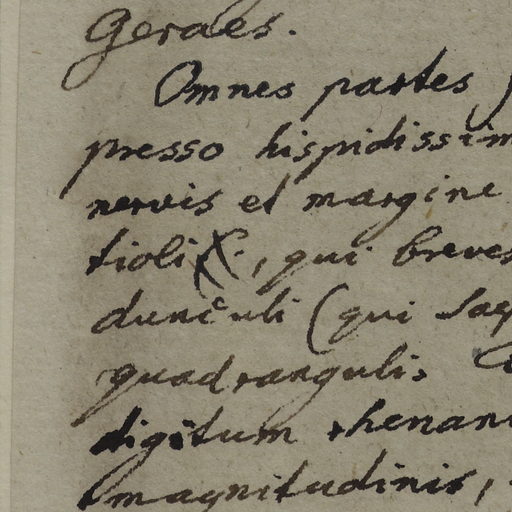 Geraes.
Omnes partes
presso hispidissim
nervis et margine
tioli, qui breves
dunculi (qui saep
quadrangulis
digitum rhenan
magnitudinis,